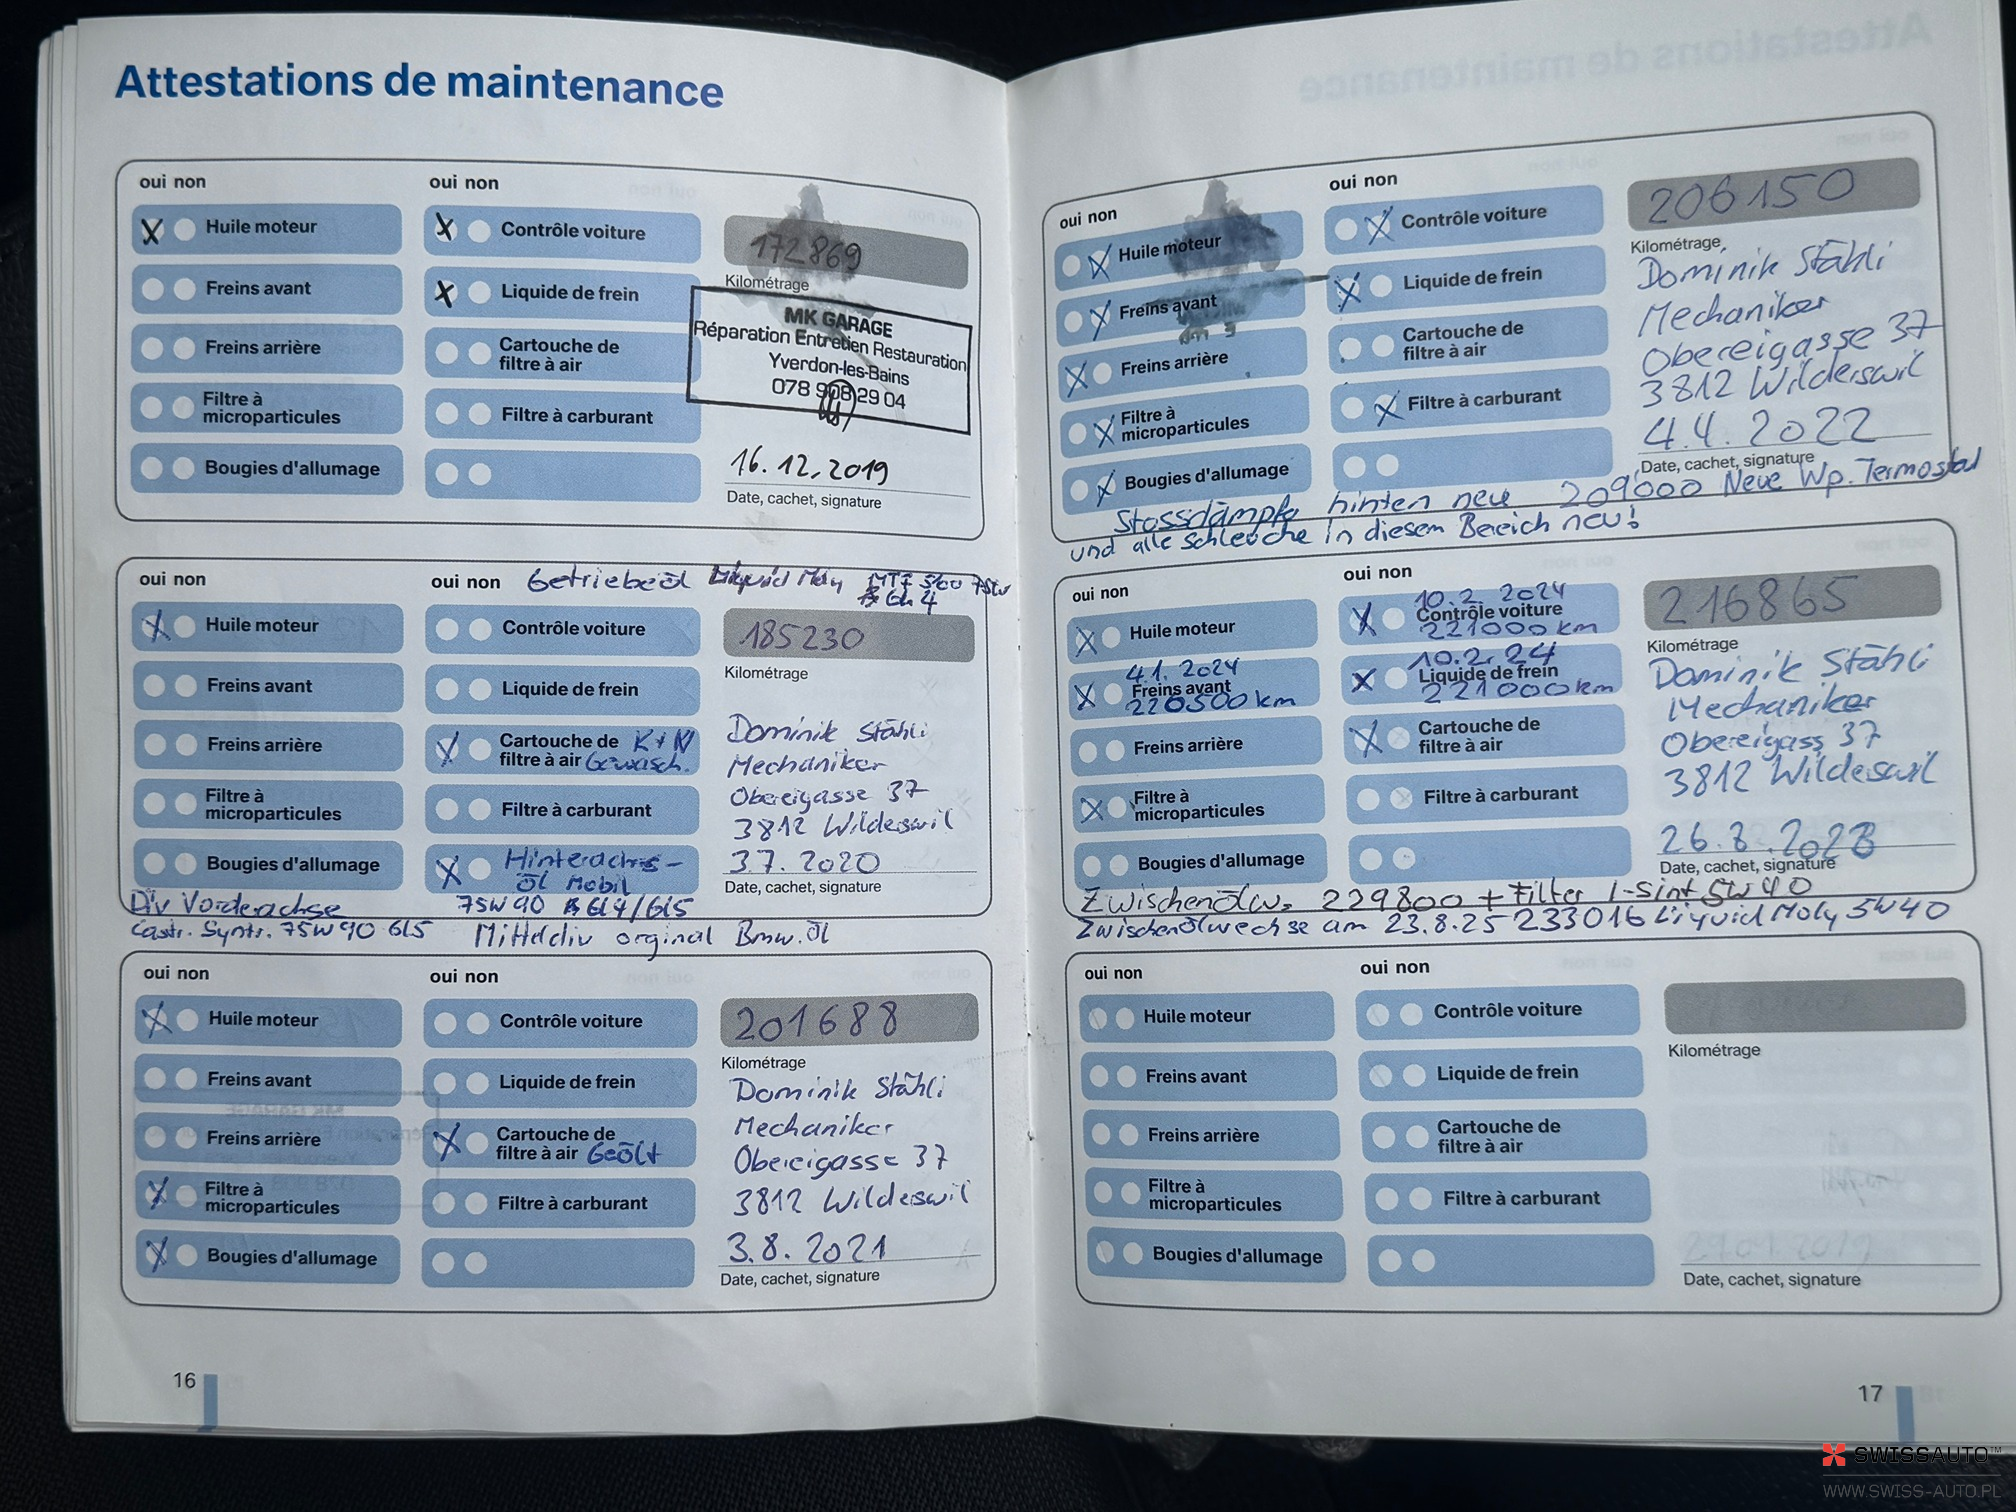 Attestations de maintenance
oui non
oui non
Huile moteur
Contrôle voiture
172869
Freins avant
Liquide de frein
Kilométrage
Freins arrière
Cartouche de
filtre à air
MK GARAGE
Réparation Entretien Restauration
Yverdon-les-Bains
078 908 29 04
Filtre à
microparticules
Filtre à carburant
Bougies d'allumage
16.12.2019
Date, cachet, signature
oui non
oui non
Getriebeöl Liquid Moly MTF 5100 75W
GL 4
Huile moteur
Contrôle voiture
185230
Kilométrage
Freins avant
Liquide de frein
Freins arrière
Cartouche de K+N
filtre à air Gewasch.
Filtre à
microparticules
Filtre à carburant
Bougies d'allumage
Hinterachs-
öl Mobil
Dominik Stähli
Mechaniker
Obereigasse 37
3812 Wilderswil
3.7.2020
Date, cachet, signature
Div Vorderachse 75W90 GL4/GL5
Castr. Syntr. 75W90 GL5 Mitteldiv orginal Bmw.öl
oui non
oui non
Huile moteur
Contrôle voiture
201688
Kilométrage
Freins avant
Liquide de frein
Freins arrière
Cartouche de
filtre à air Geölt
Filtre à
microparticules
Filtre à carburant
Bougies d'allumage
Dominik Stähli
Mechaniker
Obereigasse 37
3812 Wilderswil
3.8.2021
Date, cachet, signature
16
oui non
oui non
Huile moteur
Contrôle voiture
206150
Kilométrage
Freins avant
Liquide de frein
Freins arrière
Cartouche de
filtre à air
Filtre à
microparticules
Filtre à carburant
Bougies d'allumage
Dominik Stähli
Mechaniker
Obereigasse 37
3812 Wilderswil
4.4.2022
Date, cachet, signature
Stossdämpfe hinten neu 209000 Neue Wp. Termostat
und alle Schleuche in diesem Bereich neu!
oui non
oui non
Huile moteur
10.2.2024
Contrôle voiture
221000 km
216865
Kilométrage
4.1.2024
Freins avant
220500 km
10.2.24
Liquide de frein
221000 km
Freins arrière
Cartouche de
filtre à air
Filtre à
microparticules
Filtre à carburant
Bougies d'allumage
Dominik Stähli
Mechaniker
Obereigass 37
3812 Wilderswil
26.8.2023
Date, cachet, signature
Zwischenölw. 229800 + Filter 1-Sint 5W40
Zwischenölwechse am 23.8.25 233016 Liquid Moly 5W40
oui non
oui non
Huile moteur
Contrôle voiture
Kilométrage
Freins avant
Liquide de frein
Freins arrière
Cartouche de
filtre à air
Filtre à
microparticules
Filtre à carburant
Bougies d'allumage
Date, cachet, signature
17
SWISSAUTO™
WWW.SWISS-AUTO.PL